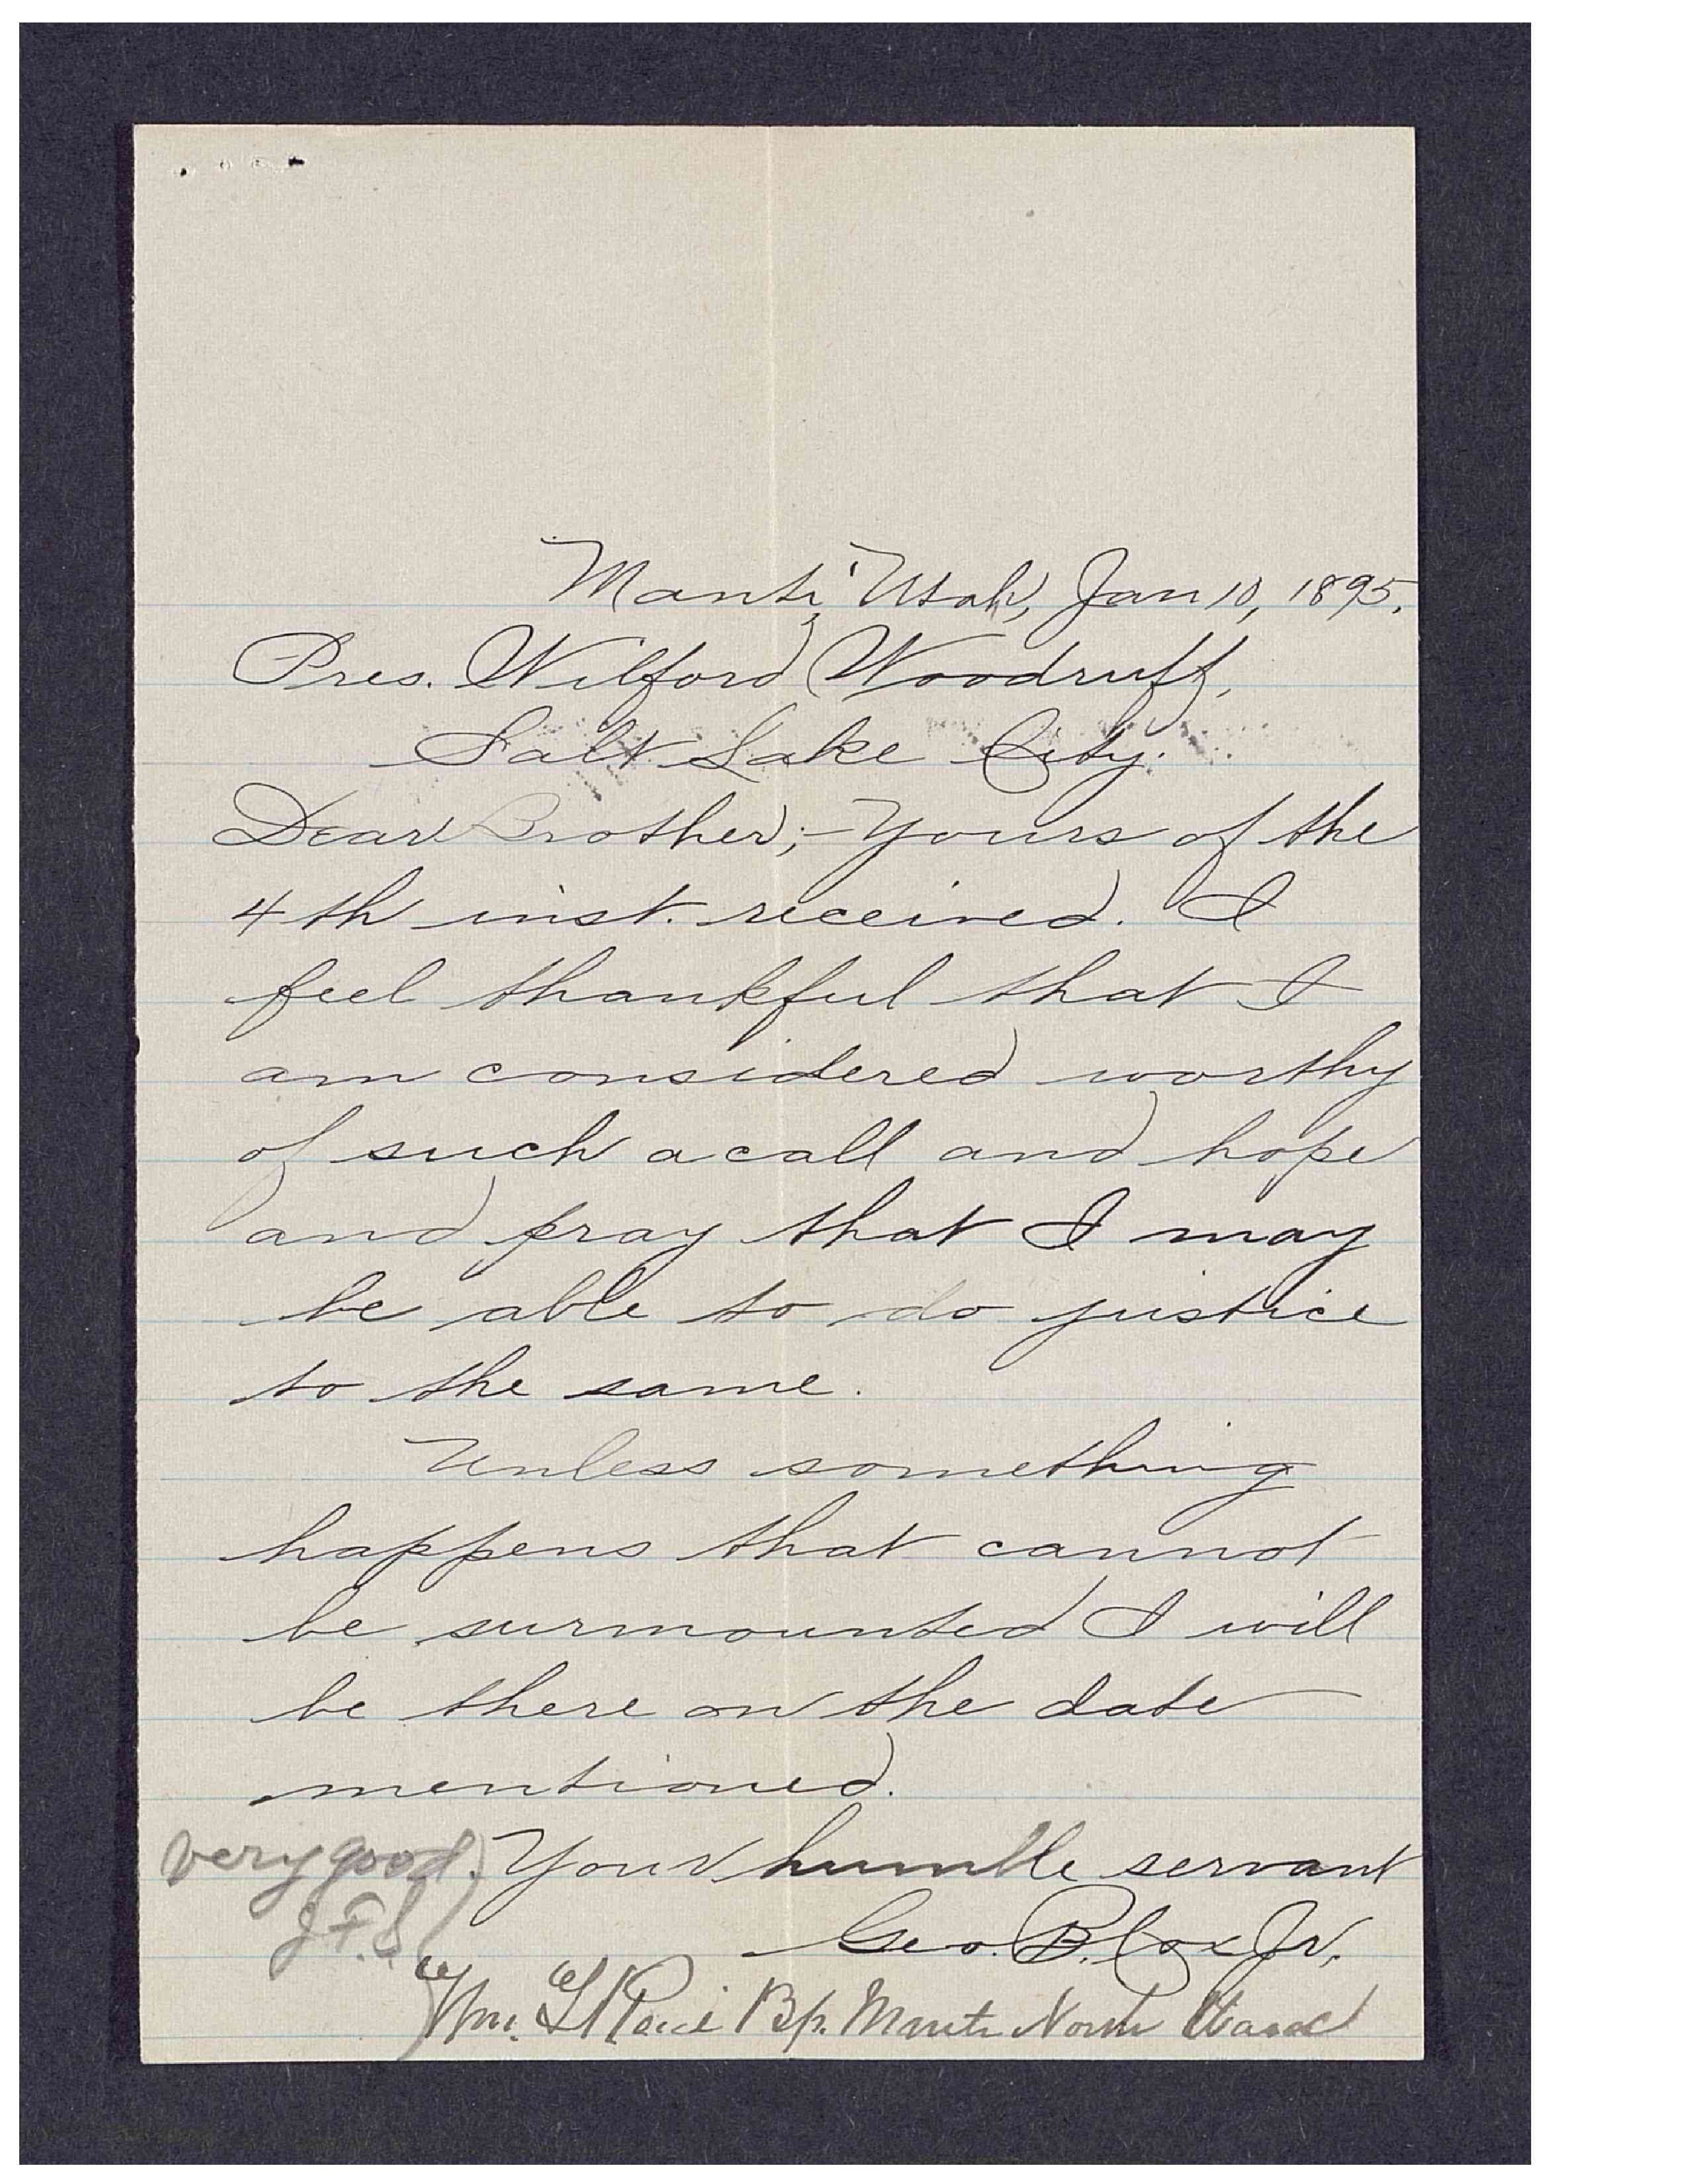 Manti, Utah, Jan 10, 1895.
Pres. Wilford Woodruff,
Salt Lake City.
Dear Brother;- Yours of the
4th inst. received. I
feel thankful that I
am considered worthy
of such a call and hope
and pray that I may
be able to do justice
to the same.
Unless something
happens that cannot
be surmounted I will
be there on the date
mentioned.
Your humble servant
Geo. B. Cox Jr.
very good.
J.F.S.
Wm. Bp. Manti North Ward